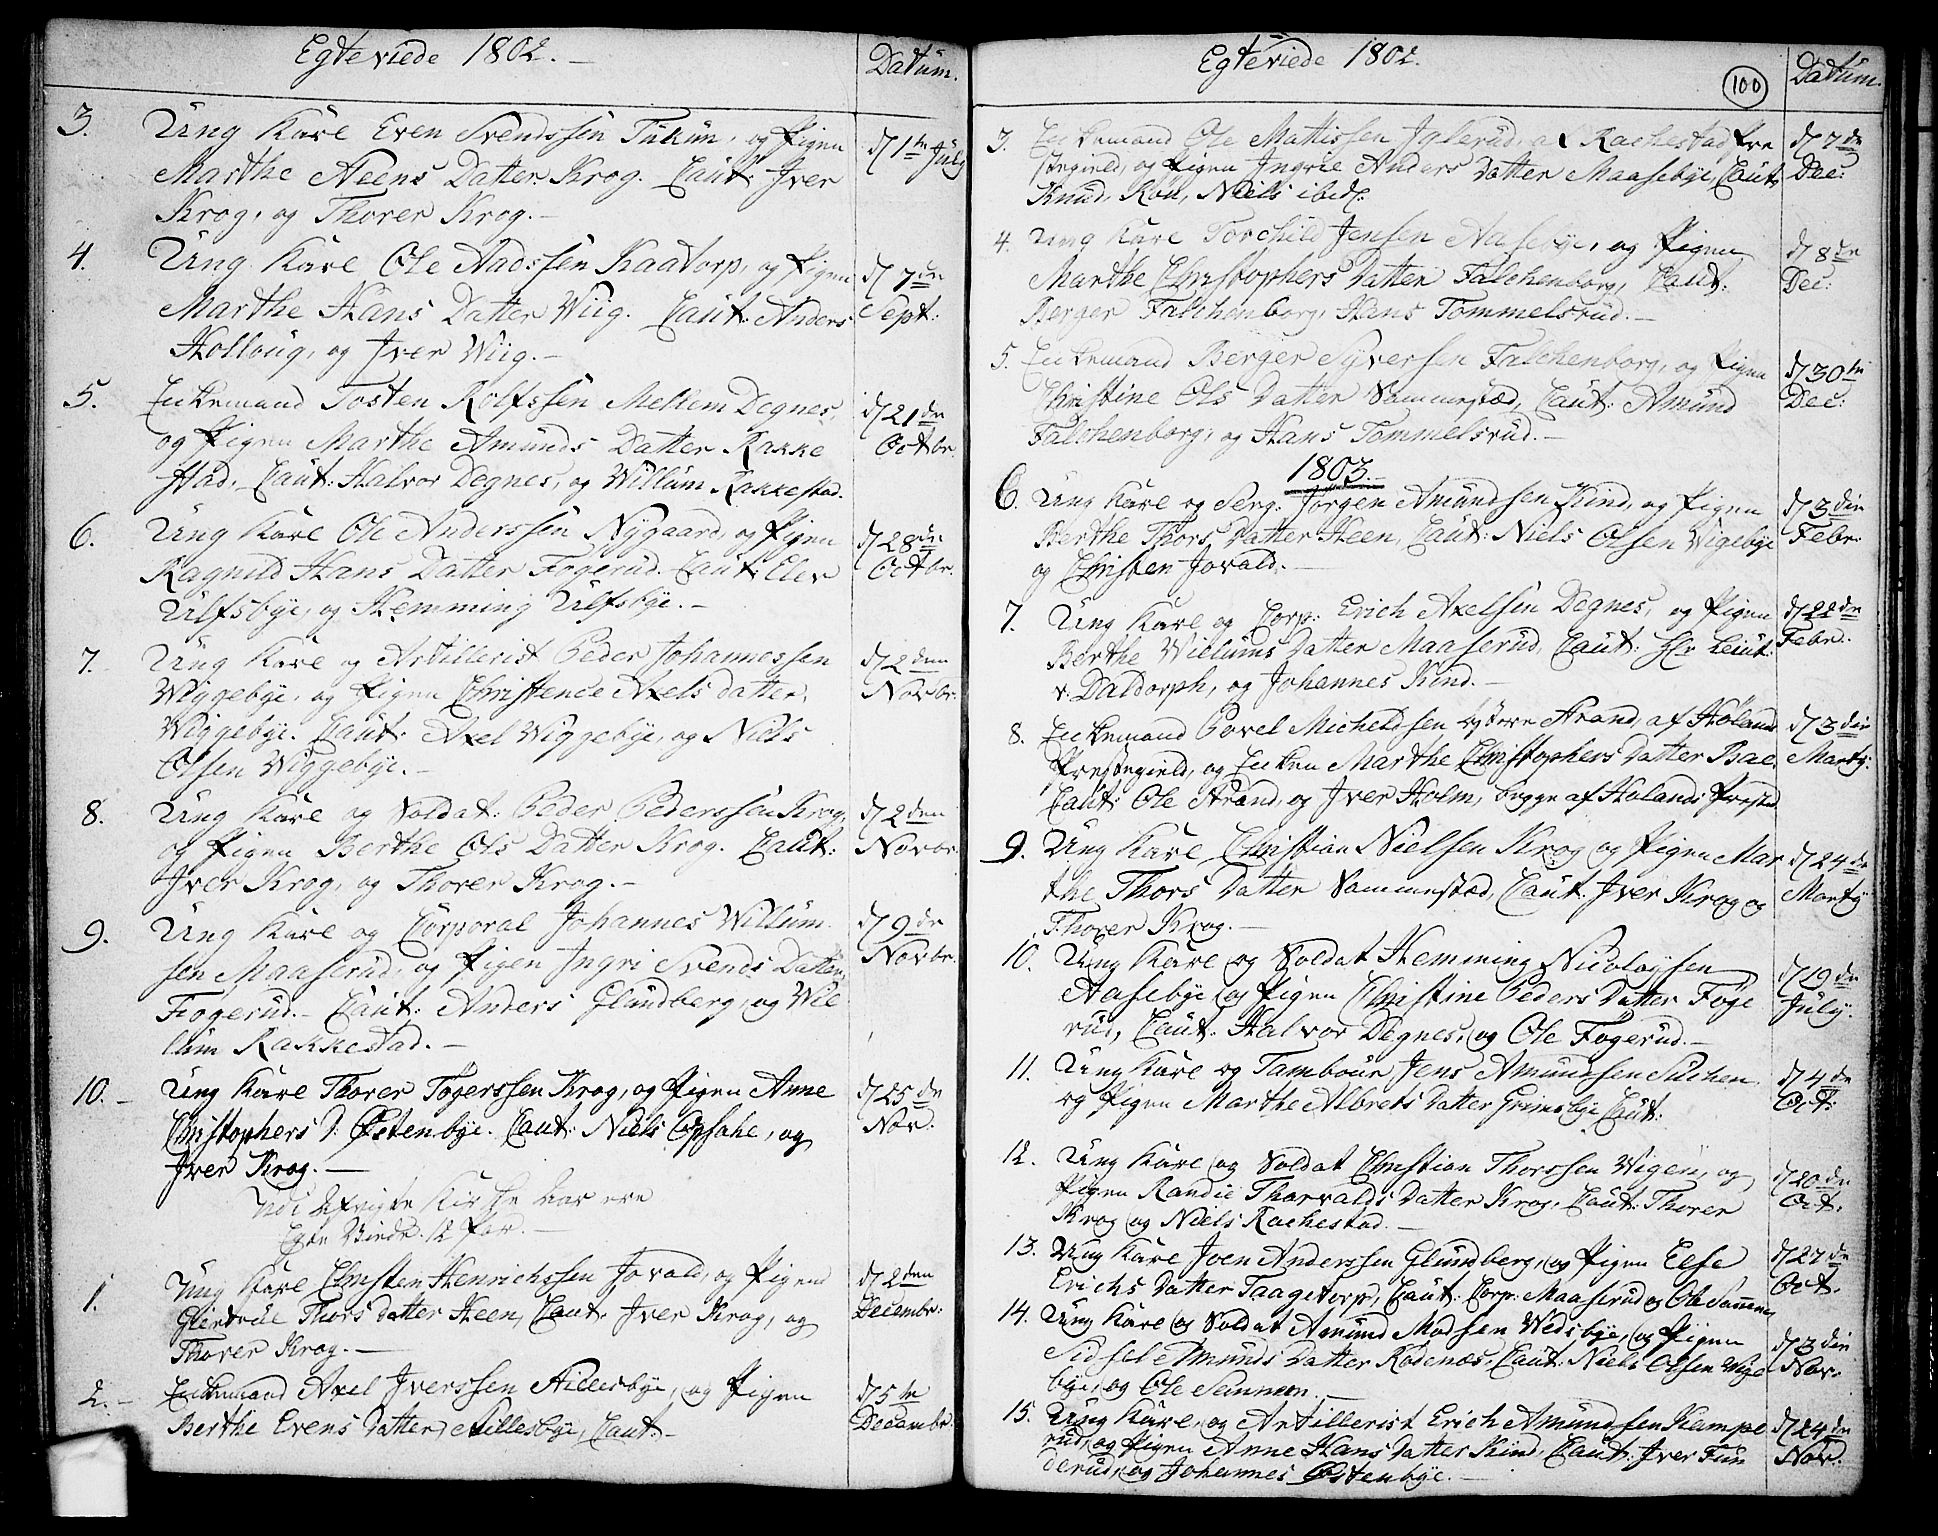 Egteviede 1802.
Datum.
3. Ung Karl Even Svendssen Tukun, og Pigen
Marthe Steens Datter Krog. Caut: Iver
Krog, og Thorer Krog.
d 1te July
4. Ung Karl Ole Aadssen Kaatorp, og Pigen
Marthe Hans Datter Wiig. Caut: Anders
Kolloug, og Iver Wiig.
d 7de
Sept:
5. Enkemand Tosten Rolfssen Mellem Degnes,
og Pigen Marthe Amunds Datter Rakke
stad. Caut: Halvor Degnes, og Willum Rakkestad.
d 21de
Octbr.
6. Ung Karl Ole Anderssen Nygaard, og Pigen
Ragnild Hans Datter Fogerud. Caut: Elev
Ulfsbye, og Hemming Ulfsbye.
d 28de
Octbr.
7. Ung Karl og Artillerist Peder Johannessen
Wiggebye, og Pigen Christence Axels datter
Wiggebye. Caut: Axel Wiggebye, og Niels
Olsen Wiggebye.
d 2den
Novbr.
8. Ung Karl og Soldat: Peder Pederssen Krog,
og Pigen Berthe Ols Datter Krog. Caut:
Iver Krog, og Thorer Krog.
d 2den
Novbr.
9. Ung Karl og Corporal Johannes Willum
sen Maaserud, og Pigen Ingri Svends Datter
Fogerud. Caut: Anders Glundberg, og Wil
lum Rakkestad.
d 9de
Novbr.
10. Ung Karl Thorer Togerssen Krog, og Pigen Anne
Christophers D: Østenbye. Caut: Niels Opsahl, og
Iver Krog.
d 25de
Nov.
Kirke har
12 Par.
1. Ung Karl Christen Henrichssen Jovald, og Pigen
Giertrue Thors Datter Heen, Caut. Iver Krog, og
Thorer Krog.
d 2den
Decembr:
2. Enkemand Axel Iverssen Nillesbye, og Pigen
Berthe Evens Datter Nillesbye, Caut:
d 5te
Decembr.
Egteviede 1802.
100
Datum.
3. Enkemand Ole Mattissen Iglerud, af Rachestad Pre
stegield, og Pigen Ingrie Anders Datter Maasebye, Caut
Knud Kou, Niels ibid:
d 7de
Dec:
4. Ung Karl Torchild Jensen Aasebye, og Pigen
Marthe Christophers Datter Falchenborg, Caut.
Berger Falchenborg, Hans Tommelsrud.
d 8de
Dec:
5. Enkemand Berger Syversen Falchenborg, og Pigen
Christine Ols Datter Sammestæd, Caut: Amund
Falchenborg, og Hans Tommelsrud.
d 30te
Dec:
1803.
6. Ung Karl og Serg: Jørgen Amundsen Kind, og Pigen
Berthe Thors Datter Heen, Caut: Niels Olsen Wigebye
og Christen Jovald.
d 3die
Febr:
7. Ung Karl og Corp: Erich Axelsen Degnes, og Pigen
Berthe Willums Datter Maaserud, Caut: Hr Leiut:
v. Daldorph, og Johannes Kind.
d 22de
Febr.
8. Enkemand Povel Michelssen Strand, af Høland
Prestegield, og Enken Marthe Christophers Datter Bae.
Caut: Ole Strand, og Iver Holm, begge af Holands Prestd
d 3die
Marty:
9. Ung Karl Christian Nielsen Krog og Pigen Mar
the Thors Datter Sammestæd, Caut. Iver Krog og
Thorer Krog.
d 24de
Marty
10. Ung Karl og Soldat Hemming Nicolaysen
Aasebye og Pigen Christine Peders Datter Foge
rud, Caut: Halvor Degnes, og Ole Fogerud.
d 19de
July.
11. Ung Karl og Tambour Jens Amundsen
og Pigen Marthe Albrets Datter Grimsbye Caut:
d 4de
Oct:
12. Ung Karl og Soldat Christian Thorssen Wigen, og
Pigen Randie Thorvalds Datter Krog, Caut: Thorer
Krog og Niels Rachestad.
d 20de
Oct.
13. Ung Karl Joen Anderssen Glundberg, og Pigen Else
Erichs Datter Taagetorp, Caut: Corp: Maaserud og Ole Sammen
d 27de
Oct.
14. Ung Karl og Soldat Amund Madsen Wedsbye, og Pigen
Sidsel Amunds Datter Rødenæs, Caut: Niels Olsen Wige
bye, og Ole Sammen.
d 3die
Nov.
15. Ung Karl og Artillerist Erich Amundsen Kampe
rud, og Pigen Anne Hans Datter Kind, Caut: Iver Fun
derud, og Johannes Østenbye.
d 24de
Nov.